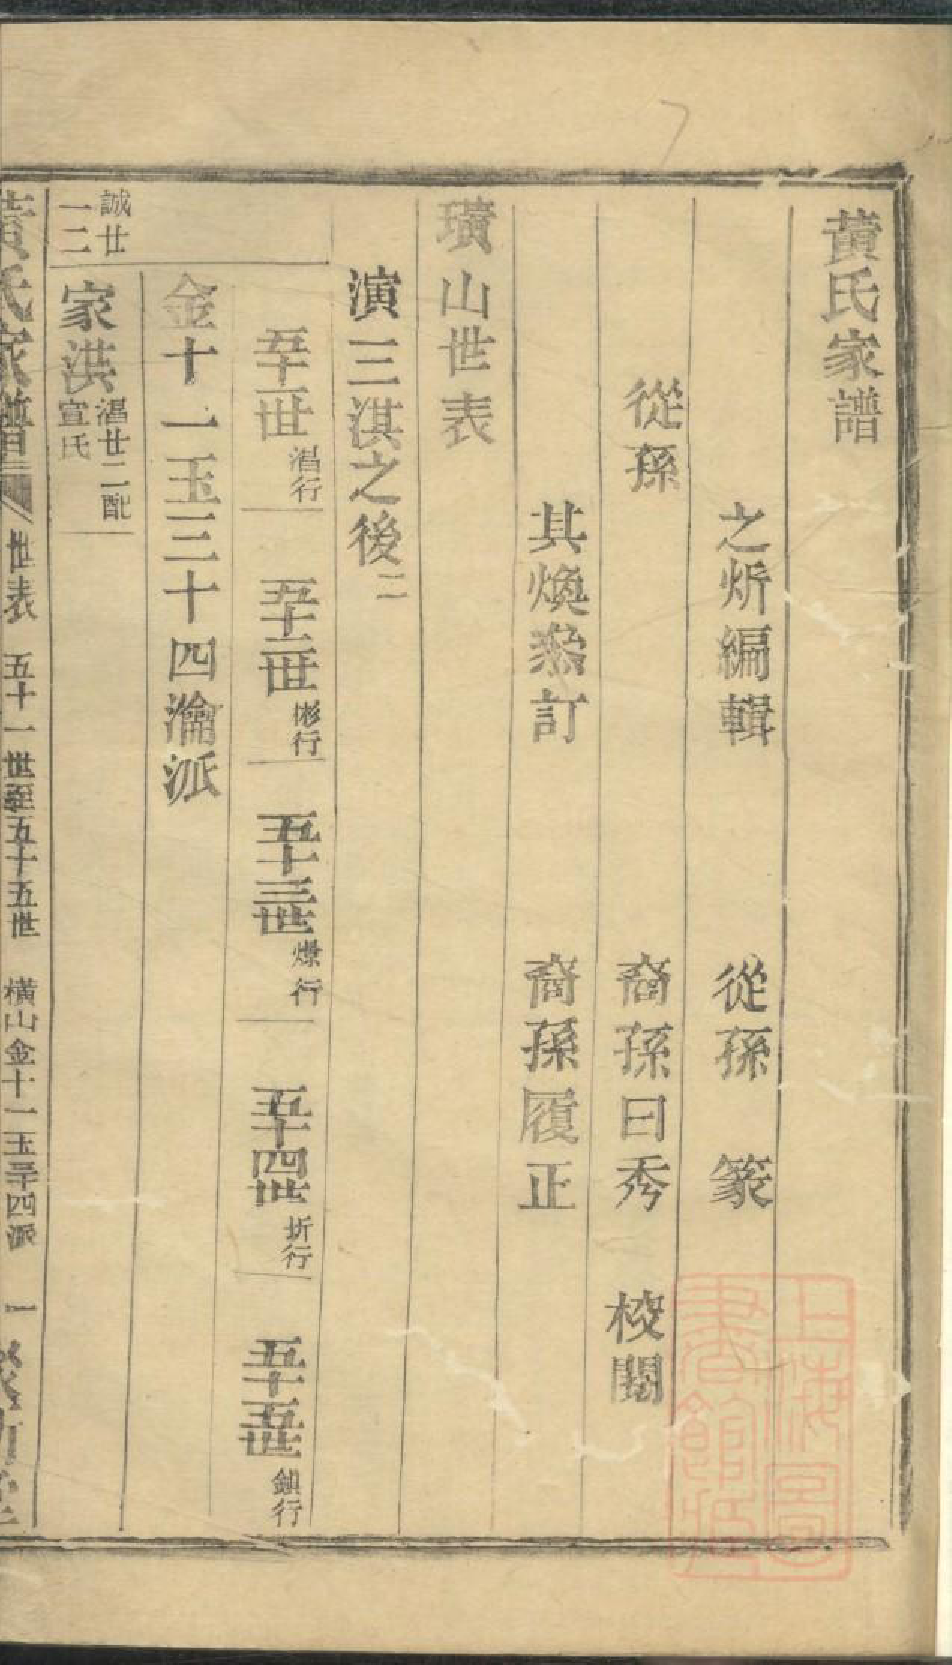 黄氏家譜
之炘編輯 從孫 篆
從孫 裔孫曰秀 校閱
其煥叅訂 裔孫履正
璜山世表
演三淇之後二
五十一世 湒行
五十二世 彬行
五十三世 燝行
五十四世 圻行
五十五世 鎖行
金十一玉三十四瀹派
誠廿一二
家洪 湒廿二配宣氏
黄氏家譜 世表 五十一世至五十五世 橫山金十一玉三十四派 一
上海圖書館藏